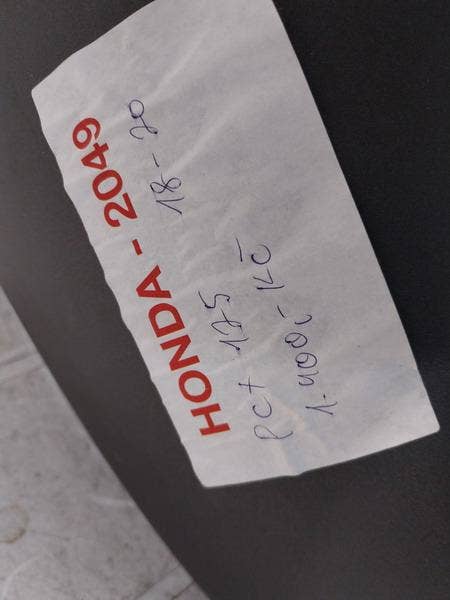 HONDA - 2049
18-20
PCX 125
1.400,- Kč